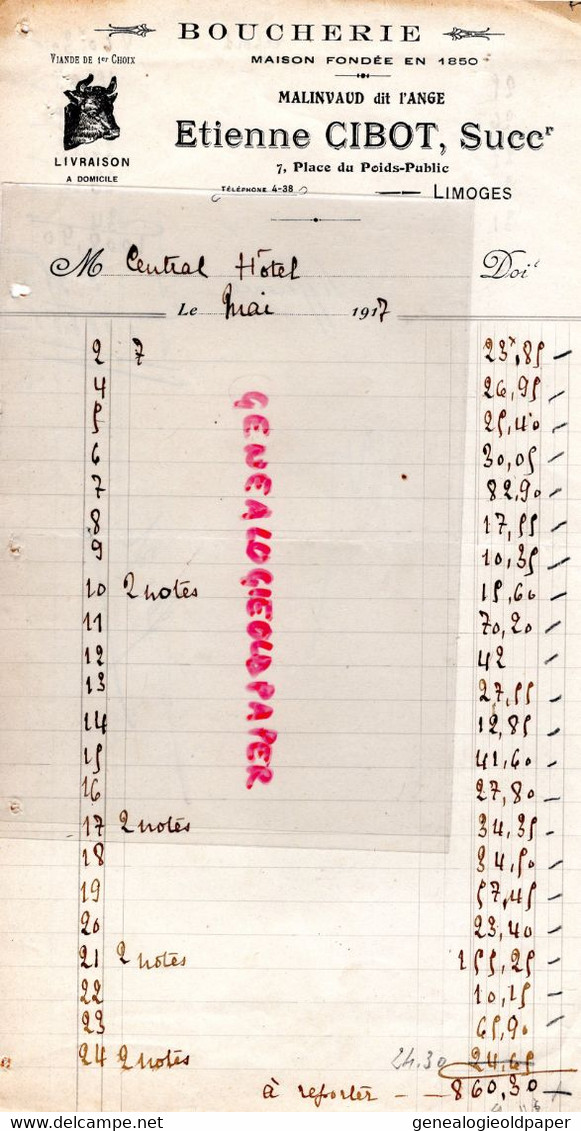 BOUCHERIE
VIANDE DE 1er CHOIX
MAISON FONDÉE EN 1850
MALINVAUD dit l'ANGE
Etienne CIBOT, Succr
LIVRAISON
A DOMICILE
7, Place du Poids-Public
TÉLÉPHONE 4-38
LIMOGES
M Central Hôtel Doit
Le Mai 1917
2 7 23,85
4 26,95
5 25,40
6 30,05
7 82,90
8 17,55
9 10,35
10 2 notes 15,60
11 70,20
12 42
13 27,55
14 12,85
15 41,60
16 27,80
17 2 notes 34,35
18 34,50
19 57,45
20 23,40
21 2 notes 155,25
22 10,15
23 65,90
24 2 notes 24.30 24,65
à reporter - - 860,30
GENEALOGIEOLDPAPER
delcampe.net
genealogieoldpaper